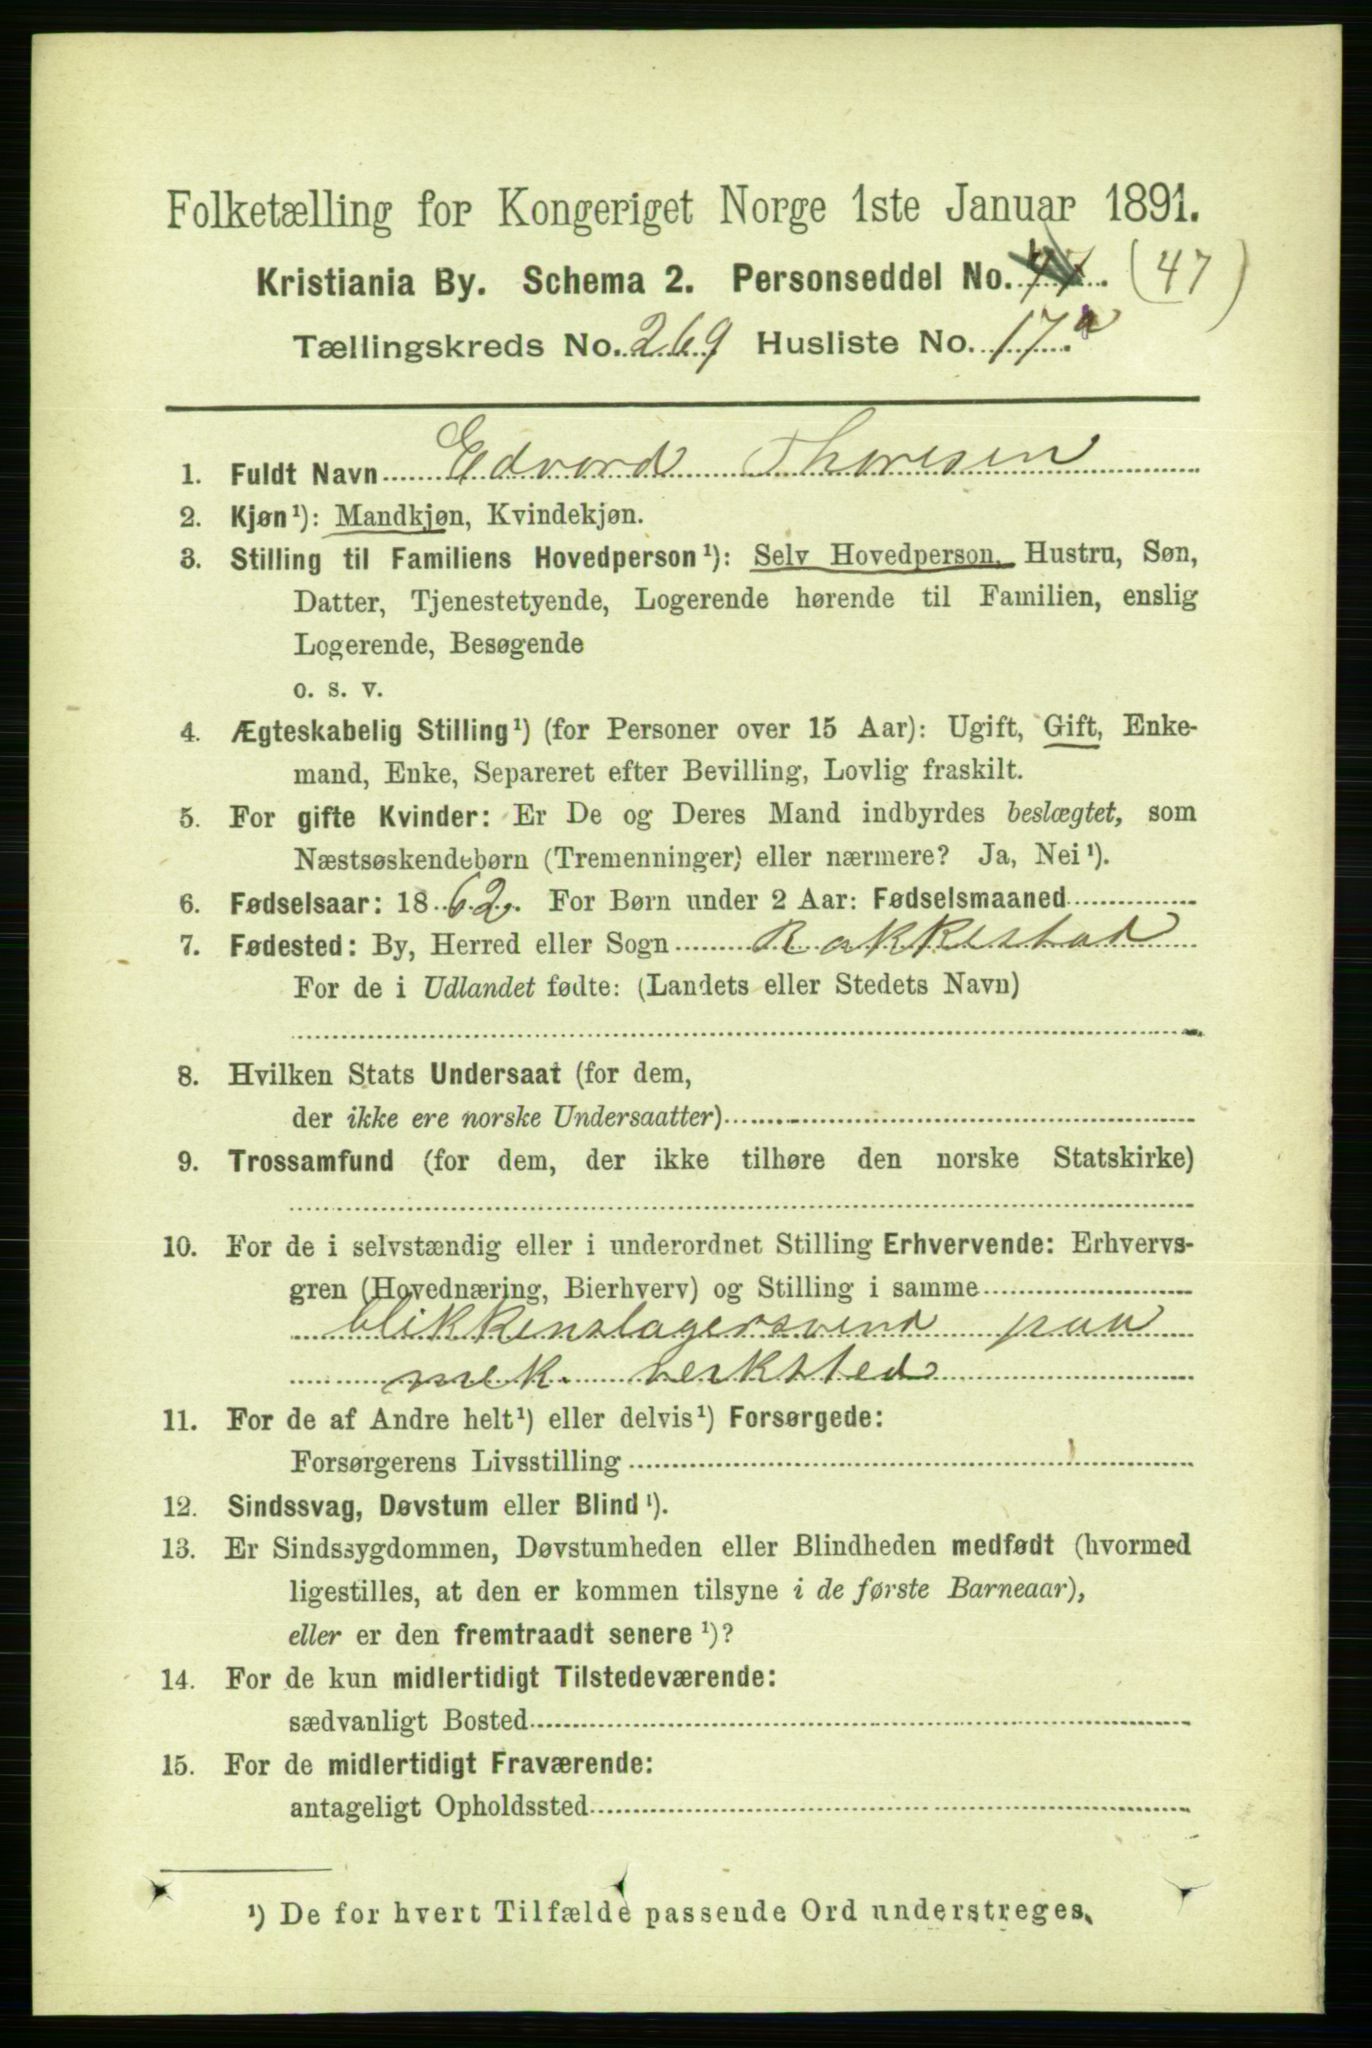 Folketælling for Kongeriget Norge 1ste Januar 1891.
Kristiania By. Schema 2. Personseddel No. (47)
Tællingskreds No. 269 Husliste No. 17a
1. Fuldt Navn Edvard Thoresen
2. Kjøn¹): Mandkjøn, Kvindekjøn.
3. Stilling til Familiens Hovedperson¹): Selv Hovedperson, Hustru, Søn,
Datter, Tjenestetyende, Logerende hørende til Familien, enslig
Logerende, Besøgende
o. s. v.
4. Ægteskabelig Stilling¹) (for Personer over 15 Aar): Ugift, Gift, Enke-
mand, Enke, Separeret efter Bevilling, Lovlig fraskilt.
5. For gifte Kvinder: Er De og Deres Mand indbyrdes beslægtet, som
Næstsøskendebørn (Tremenninger) eller nærmere? Ja, Nei¹).
6. Fødselsaar: 1862. For Børn under 2 Aar: Fødselsmaaned
7. Fødested: By, Herred eller Sogn Rakkestad
For de i Udlandet fødte: (Landets eller Stedets Navn)
8. Hvilken Stats Undersaat (for dem,
der ikke ere norske Undersaatter)
9. Trossamfund (for dem, der ikke tilhøre den norske Statskirke)
10. For de i selvstændig eller i underordnet Stilling Erhvervende: Erhvervs-
gren (Hovednæring, Bierhverv) og Stilling i samme
blikkenslagersvend paa
mek. verksted
11. For de af Andre helt¹) eller delvis¹) Forsørgede:
Forsørgerens Livsstilling
12. Sindssvag, Døvstum eller Blind¹).
13. Er Sindssygdommen, Døvstumheden eller Blindheden medfødt (hvormed
ligestilles, at den er kommen tilsyne i de første Barneaar),
eller er den fremtraadt senere¹)?
14. For de kun midlertidigt Tilstedeværende:
sædvanligt Bosted
15. For de midlertidigt Fraværende:
antageligt Opholdssted
¹) De for hvert Tilfælde passende Ord understreges.